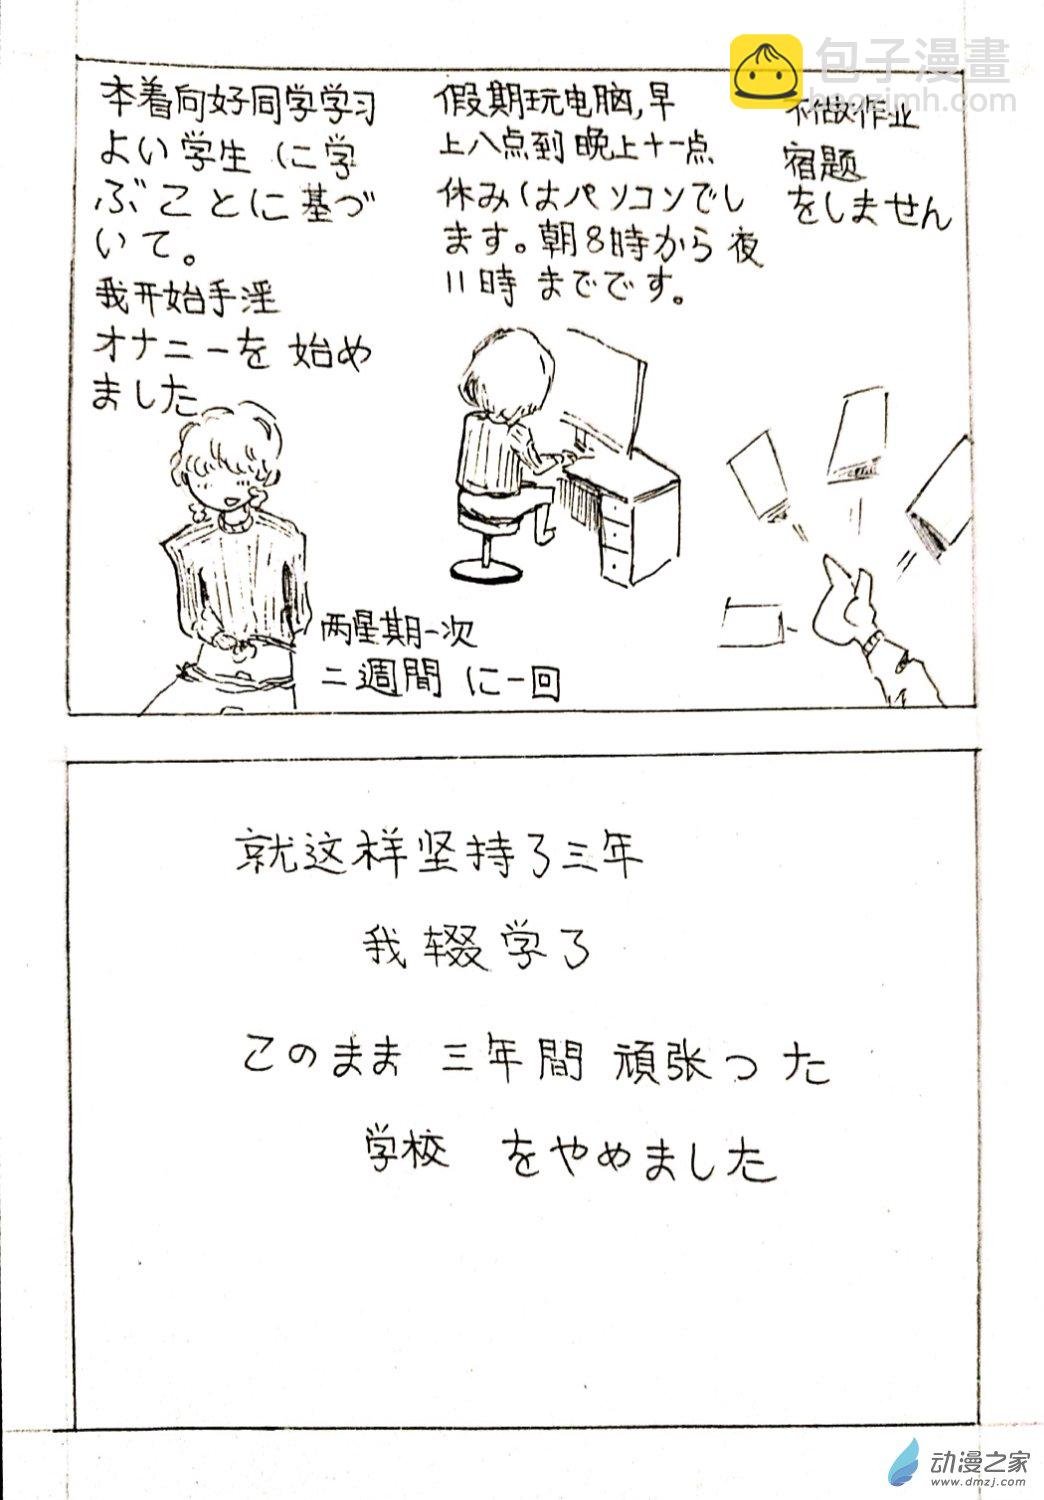 本着向好同学学习
よい学生 に学
ぶことに基づ
いて。
我开始手淫
オナニーを 始め
ました
两星期一次
二週間 に一回
假期玩电脑,早
上八点到晚上十一点
休みはパソコンでし
ます。朝8時から夜
11時 までです。
不做作业
宿題
をしません
包子漫畫
baozimh.com
就这样坚持了三年
我辍学了
このまま 三年間 頑張った
学校 をやめました
动漫之家
www.dmzj.com